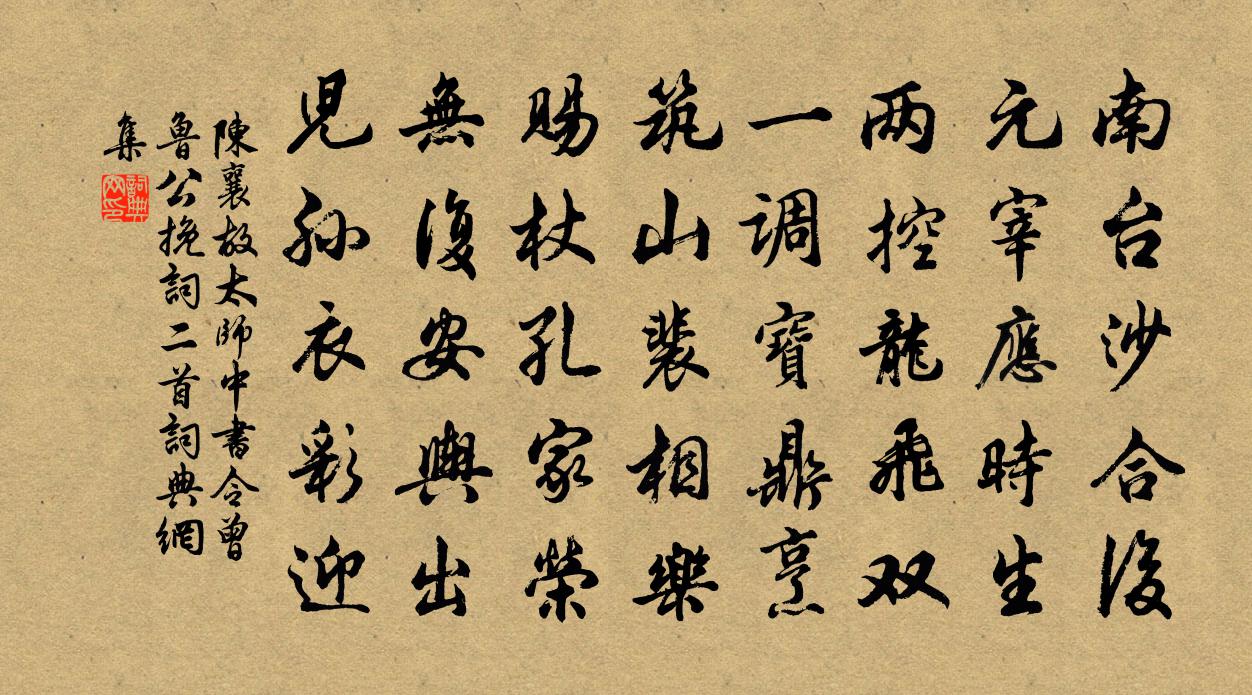 南台沙合後
元宰應時生
两控龍飛双
一调寶鼎亨
筑山裴相樂
賜杖孔家榮
無復安輿出
児孙衣彩迎
陳襄故太师中書令曾
魯公挽詞二首詞典網
集
詞典
网印